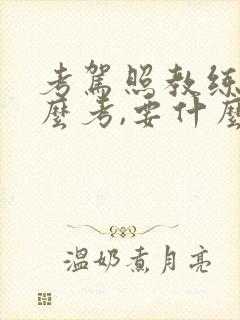 考驾照教练
麼考,要什麼
温奶煮月亮